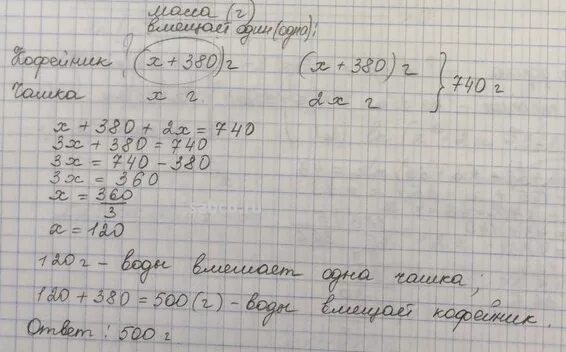 масса (г)
вмещает один (одна);
Кофейник ? (x + 380) г (x + 380) г } 740 г
Чашка x г 2x г
x + 380 + 2x = 740
3x + 380 = 740
3x = 740 - 380
3x = 360
x = 360/3
x = 120
120 г - воды вмещает одна чашка;
120 + 380 = 500 (г) - воды вмещай кофейник.
Ответ: 500 г